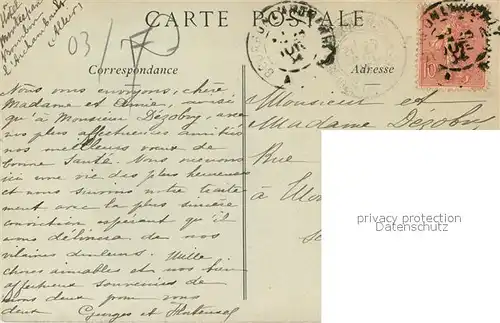 Hôtel
Moulin
L'Archambault
(Allier)
03/
CARTE POSTALE
Correspondance
Adresse
BOURBON-L'ARCHAMBAULT
10
Nous vous envoyons, chère
Madame et Amie, ainsi
qu'à Monsieur Dézobry, nos
plus affectueuses amitiés
nos meilleurs vœux de
bonne Santé. Nous menons
ici une vie des plus heureuses
et nous suivons notre traite-
ment avec la plus sincère
conviction espérant qu'il
nous délivrera de nos
vilaines douleurs. Mille
choses aimables et nos bien
affectueux souvenirs de
nous deux pour vous
deux Georges et
Monsieur et
Madame Dézobry
Rue
à
privacy protection
Datenschutz